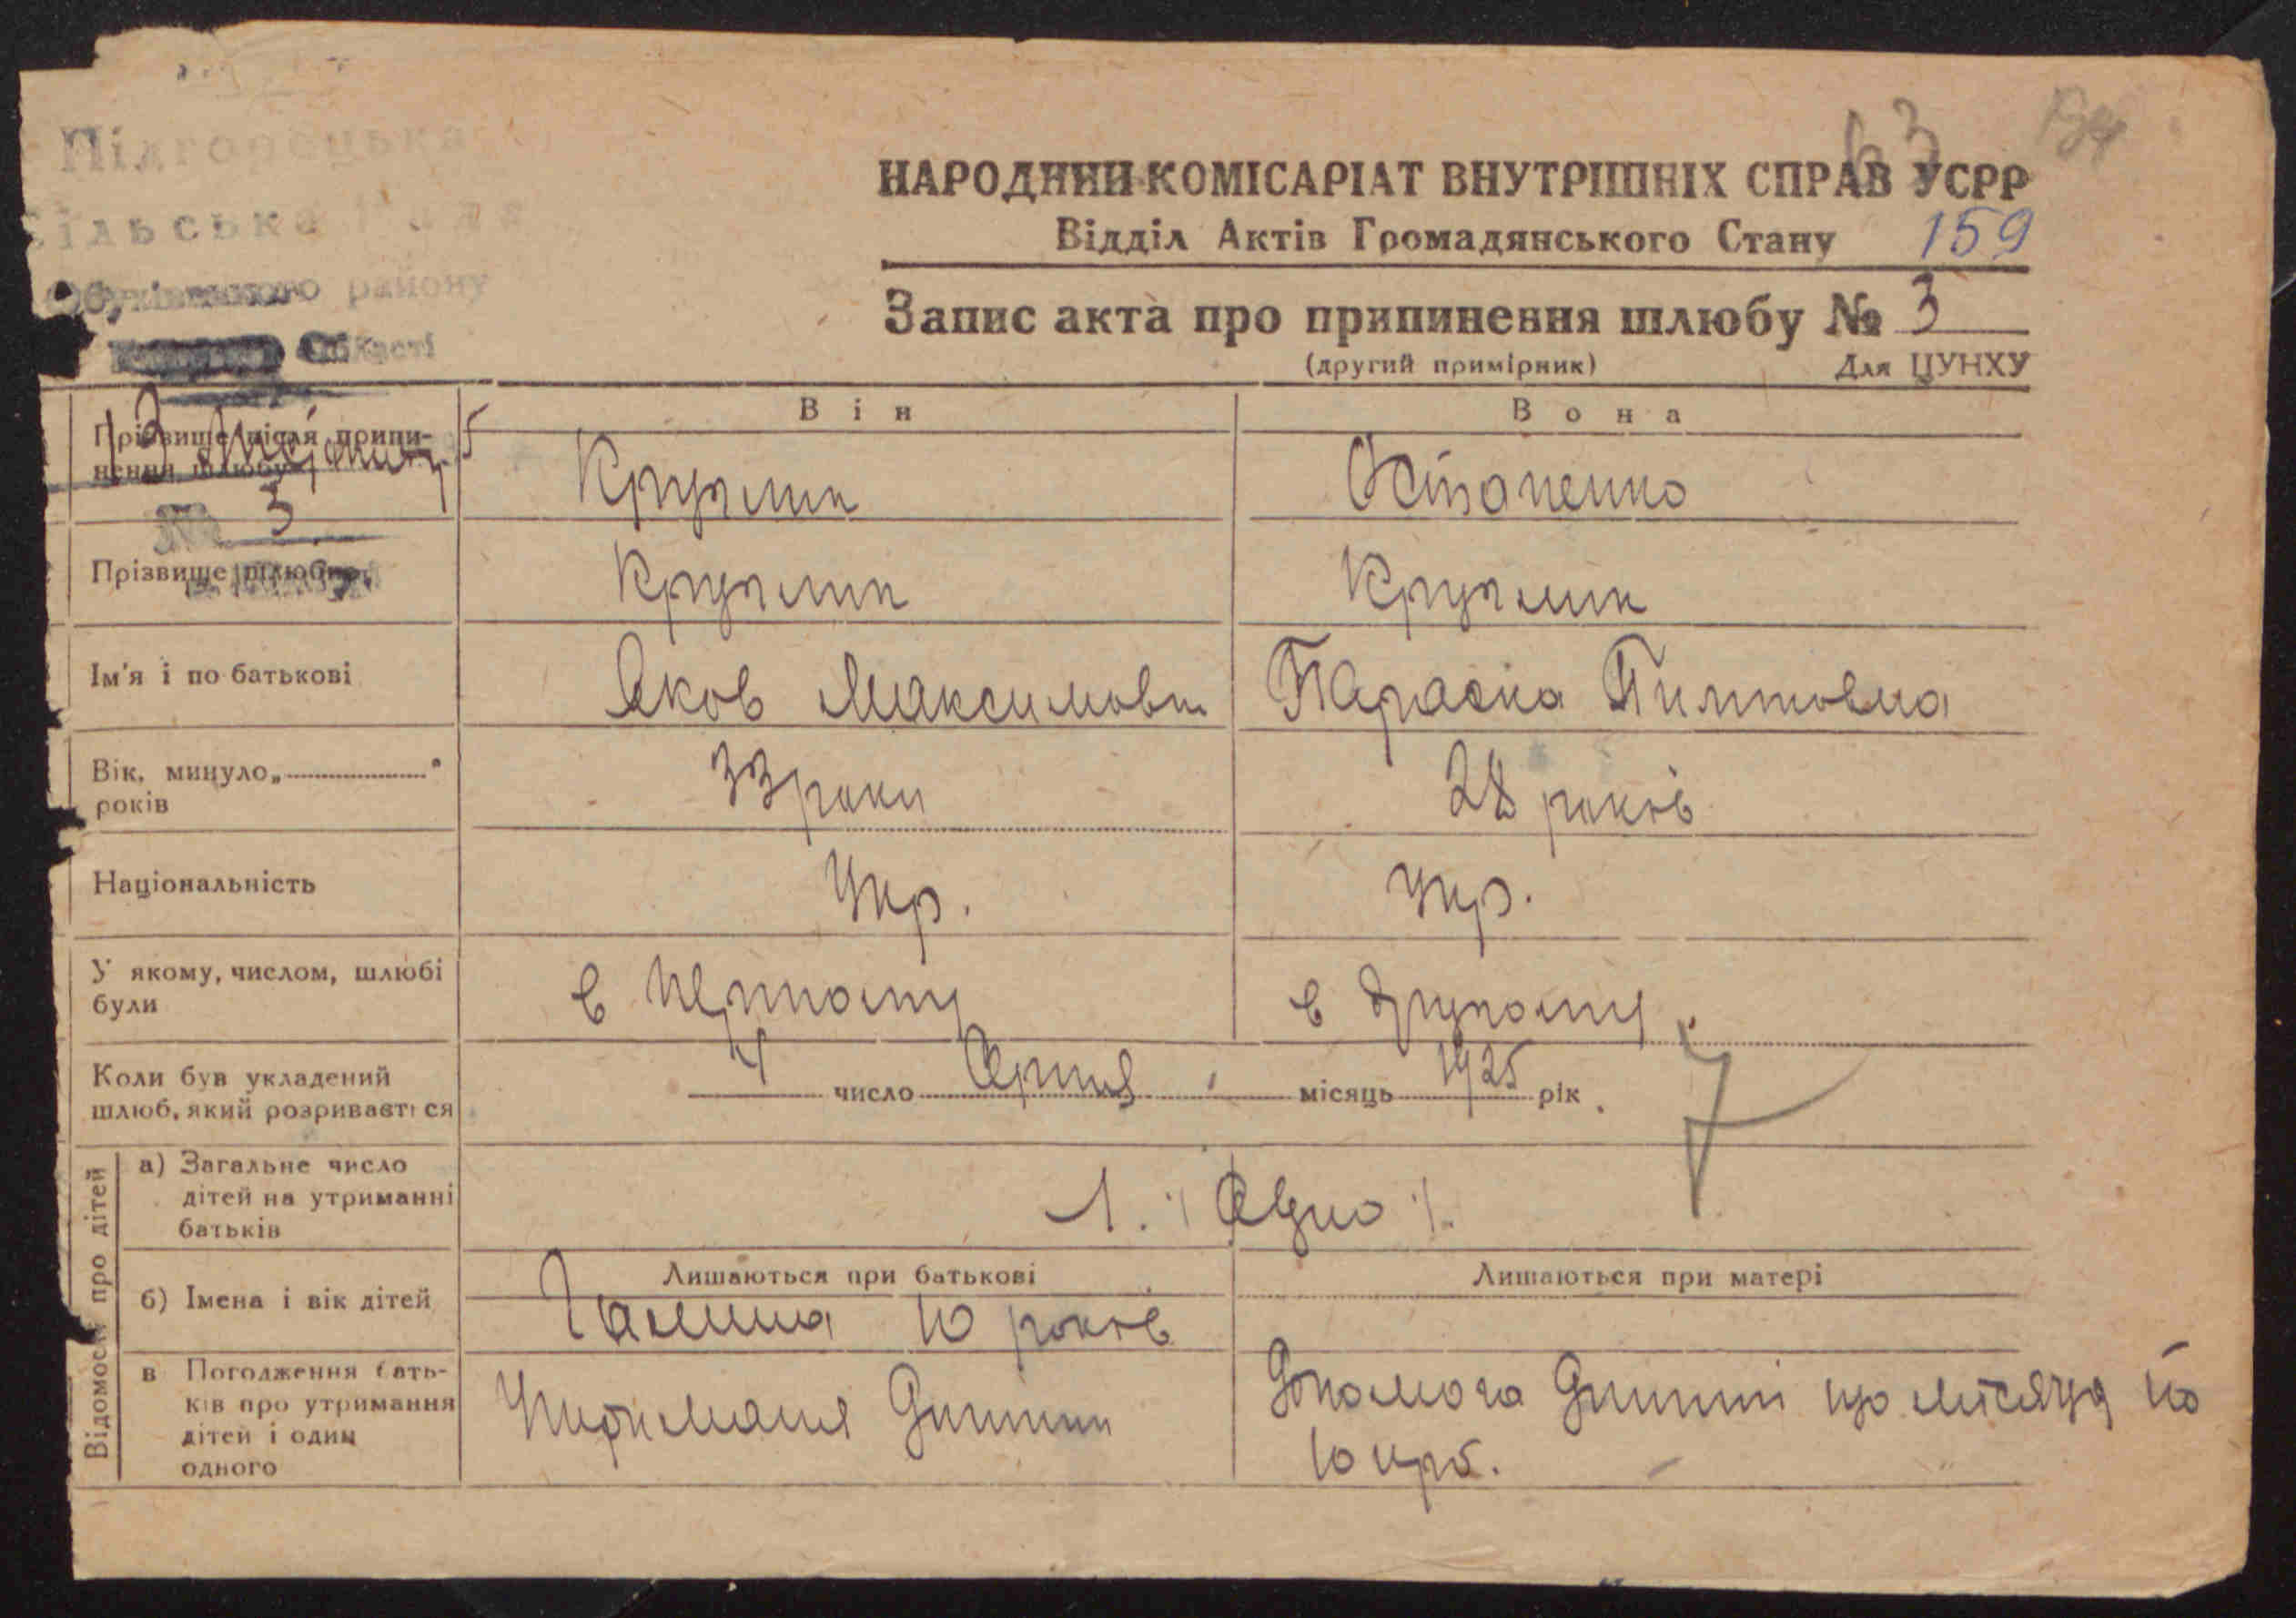 Підгорецька
Сільська Рада
Обухівського району
Області
НАРОДНИЙ КОМІСАРІАТ ВНУТРІШНІХ СПРАВ УСРР
63
Відділ Актів Громадянського Стану 159
Запис акта про припинення шлюбу № 3
(другий примірник) Для ЦУНХУ
13
№ 3
Він Вона
Прізвище після припи-
нення шлюбу Круглик Остапенко
Прізвище шлюбне Круглик Круглик
Ім'я і по батькові Яков Максимович Параска
Вік, минуло „ “
років 33 роки 28 років
Національність Укр. Укр.
У якому, числом, шлюбі
були в першому в другому
Коли був укладений
шлюб, який розривається 4 число Серпня місяць 1925 рік
Відомості про дітей
а) Загальне число
дітей на утриманні
батьків 1. Одно
б) Імена і вік дітей Лишаються при батькові Лишаються при матері
Галина 10 років
в Погодження бать-
ків про утримання
дітей і один
одного
Утримання Дитини
Допомога Дитині що місяця по
10 крб.